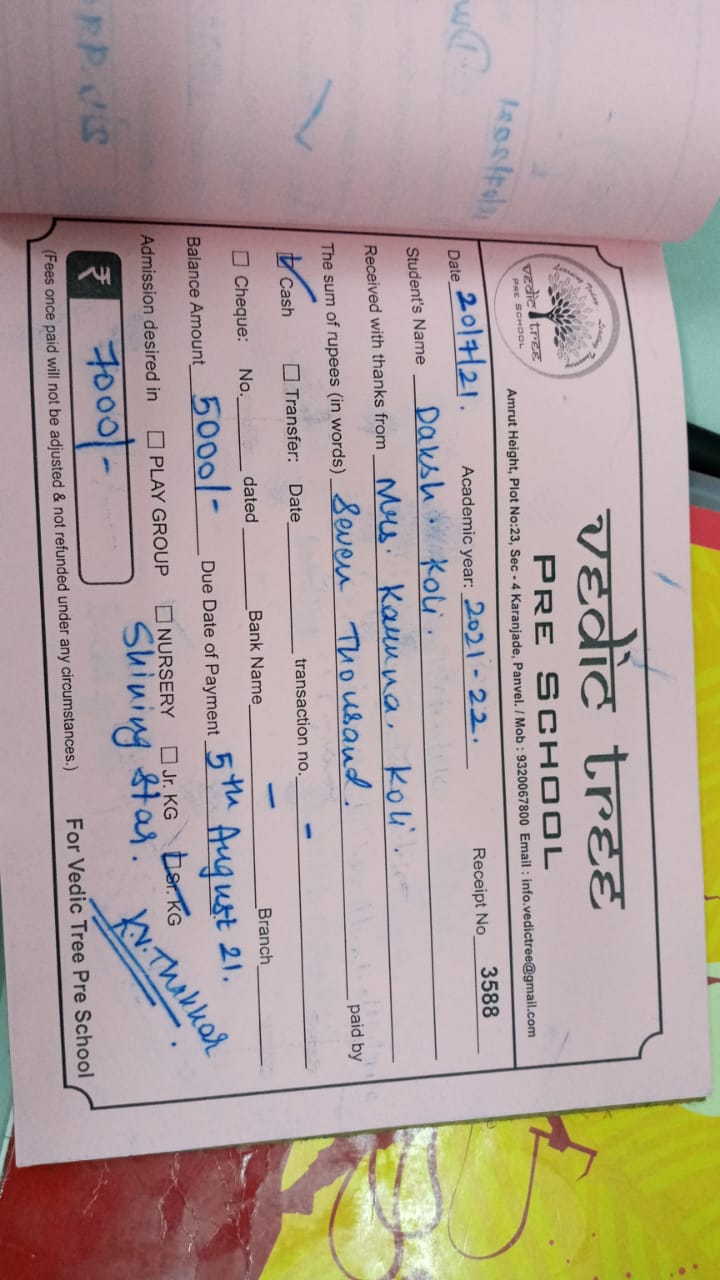 vedic tree
PRE SCHOOL
Amrut Height, Plot No:23, Sec - 4 Karanjade, Panvel. / Mob : 9320067800 Email : info.vedictree@gmail.com
vedic tree
PRE SCHOOL
Date 20/7/21. Academic year: 2021-22. Receipt No 3588
Student's Name Daksh. Koli.
Received with thanks from Mrs. Karuna. Koli.
The sum of rupees (in words) Seven Thousand. paid by
Cash Transfer: Date transaction no. -
Cheque: No. dated Bank Name - Branch
Balance Amount 5000/- Due Date of Payment 5th August 21.
Admission desired in PLAY GROUP NURSERY Jr. KG Sr. KG
Shining Star.
₹ 7000/-
K.N. Thakkar.
(Fees once paid will not be adjusted & not refunded under any circumstances.) For Vedic Tree Pre School